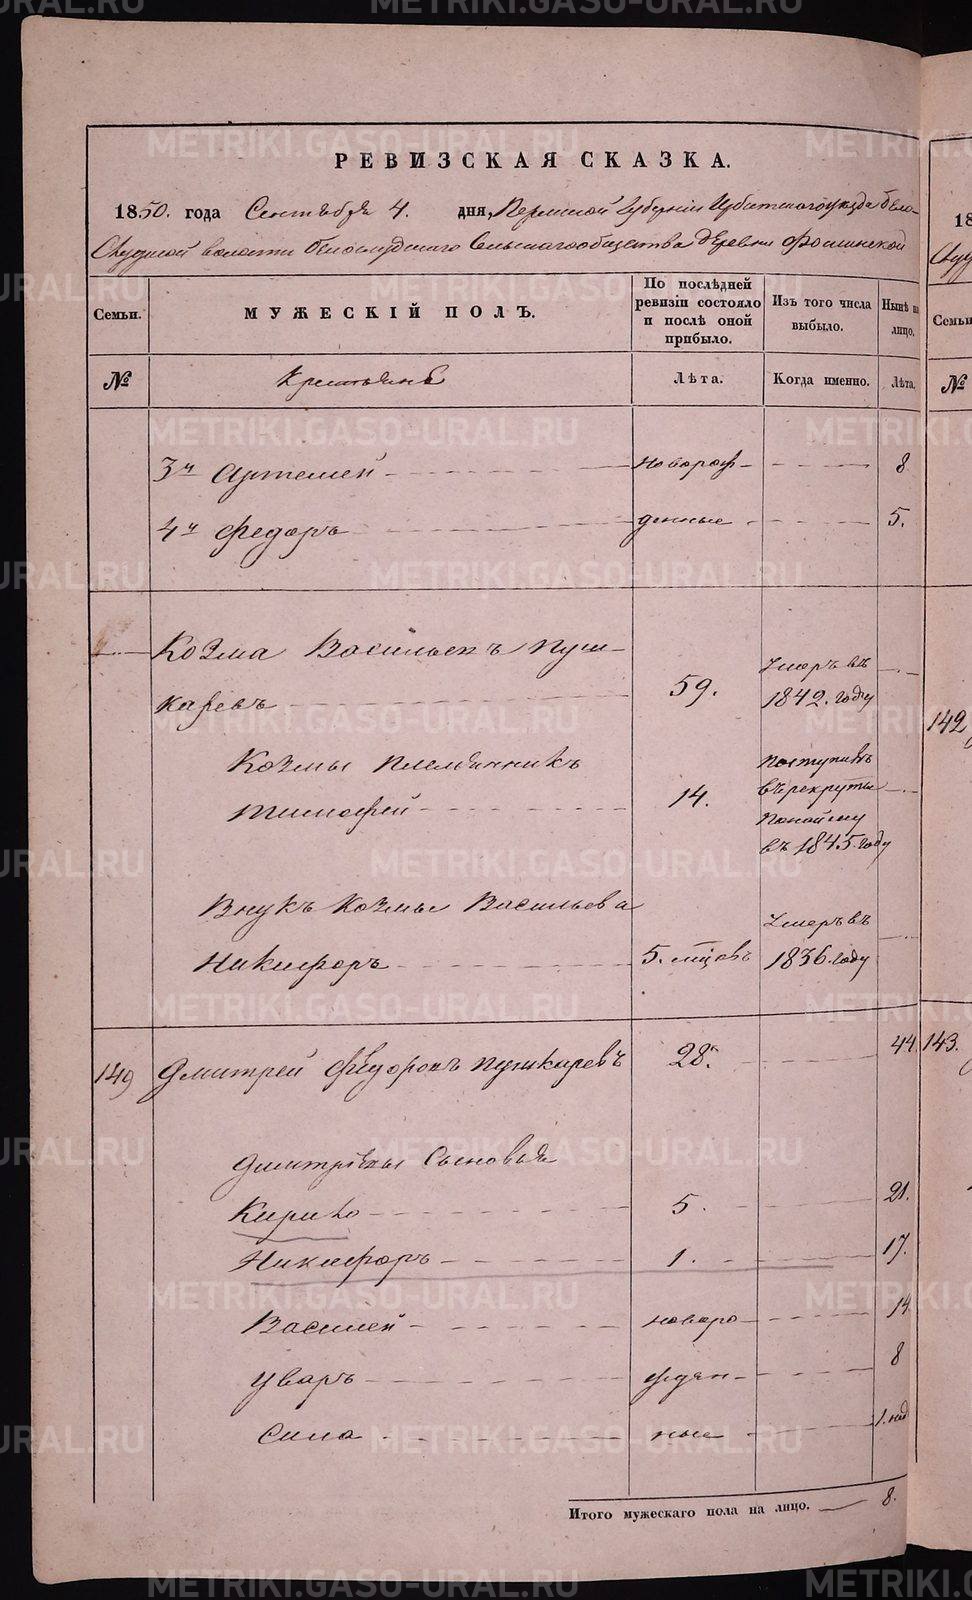 РЕВИЗСКАЯ СКАЗКА.
1850. года Сентября 4. дня, Пермской Губернiи Ирбитскагоуезда Бело-
Слудской волости Белослудскаго Сельскагообщества Деревни Фоминской
Семьи.
МУЖЕСКIЙ ПОЛЪ.
По послѣдней
ревизiи состояло
и послѣ оной
прибыло.
Изъ того числа
выбыло.
Нынѣ на
лицо.
№
Крестьяне
Лѣта.
Когда именно.
Лѣта.
3й Артемей новорож- 8
4й Федоръ денные 5.
Козма Васильевъ Пуш-
каревъ 59.
Умеръ въ
1842. году
Козмы племянникъ
Тимофей 14.
поступилъ
въ рекруты
въ 1845. году
Внукъ Козмы Васильева
Никифоръ 5. мцовъ
Умеръ въ
1836. году
149 Дмитрей Федоровъ Пушкаревъ 28. 44
Дмитрiевы Сыновья
Кирило 5. 21.
Никифоръ 1. 17.
Василей новоро 14
Уваръ жден 8
Сила ные 1. нед
Итого мужескаго пола на лицо. 8.
18
Слуд
Семьи
№
142
143.
METRIKI.GASO-URAL.RU